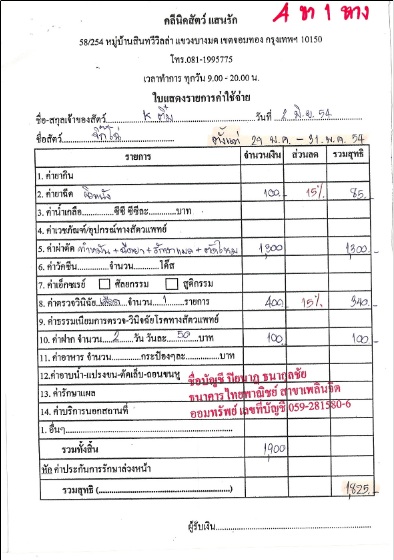 คลีนิคสัตว์ แสนรัก
A ขา 1 หาง
58/254 หมู่บ้านสินทวีวิลล่า แขวงบางมด เขตจอมทอง กรุงเทพฯ 10150
โทร.081-1995775
เวลาทำการ ทุกวัน 9.00 - 20.00 น.
ใบแสดงรายการค่าใช้จ่าย
ชื่อ-สกุลเจ้าของสัตว์ K ติ๋ม วันที่ 2 มิ.ย. 54
ชื่อสัตว์ ตั้งแต่ 29 พ.ค. - 31 พ.ค. 54
รายการ จำนวนเงิน ส่วนลด รวมสุทธิ
1. ค่ายากิน
2. ค่ายาฉีด 100 15% 85
3. ค่าน้ำเกลือ ซีซี ซีซีละ บาท
4. ค่าเวชภัณฑ์/อุปกรณ์ทางสัตวแพทย์
5. ค่าผ่าตัด ทำหมัน + ฉีดยา + รักษาแผล + ตัดไหม 1,300 1,300
6. ค่าวัคซีน จำนวน โด๊ส
7. ค่าเอ็กซเรย์ ศัลยกรรม สูติกรรม
8. ค่าตรวจวินิจฉัย เลือด จำนวน 1 รายการ 400 15% 340
9. ค่าธรรมเนียมการตรวจ-วินิจฉัยโรคทางสัตวแพทย์
10. ค่าฝาก จำนวน 2 วัน วันละ 50 บาท 100 100
11. ค่าอาหาร จำนวน กระป๋องๆละ บาท
12. ค่าอาบน้ำ-แปรงขน-ตัดเล็บ-ถอนขนหู
13. ค่ารักษาแผล
14. ค่าบริการนอกสถานที่
ชื่อบัญชี ปิยนาฏ ธนากุลชัย
ธนาคารไทยพาณิชย์ สาขาเพลินจิต
ออมทรัพย์ เลขที่บัญชี 059-281580-6
1. อื่นๆ
รวมทั้งสิ้น 1,900
หัก ค่าประกันการรักษาล่วงหน้า
รวมสุทธิ ( ) 1,825
ผู้รับเงิน